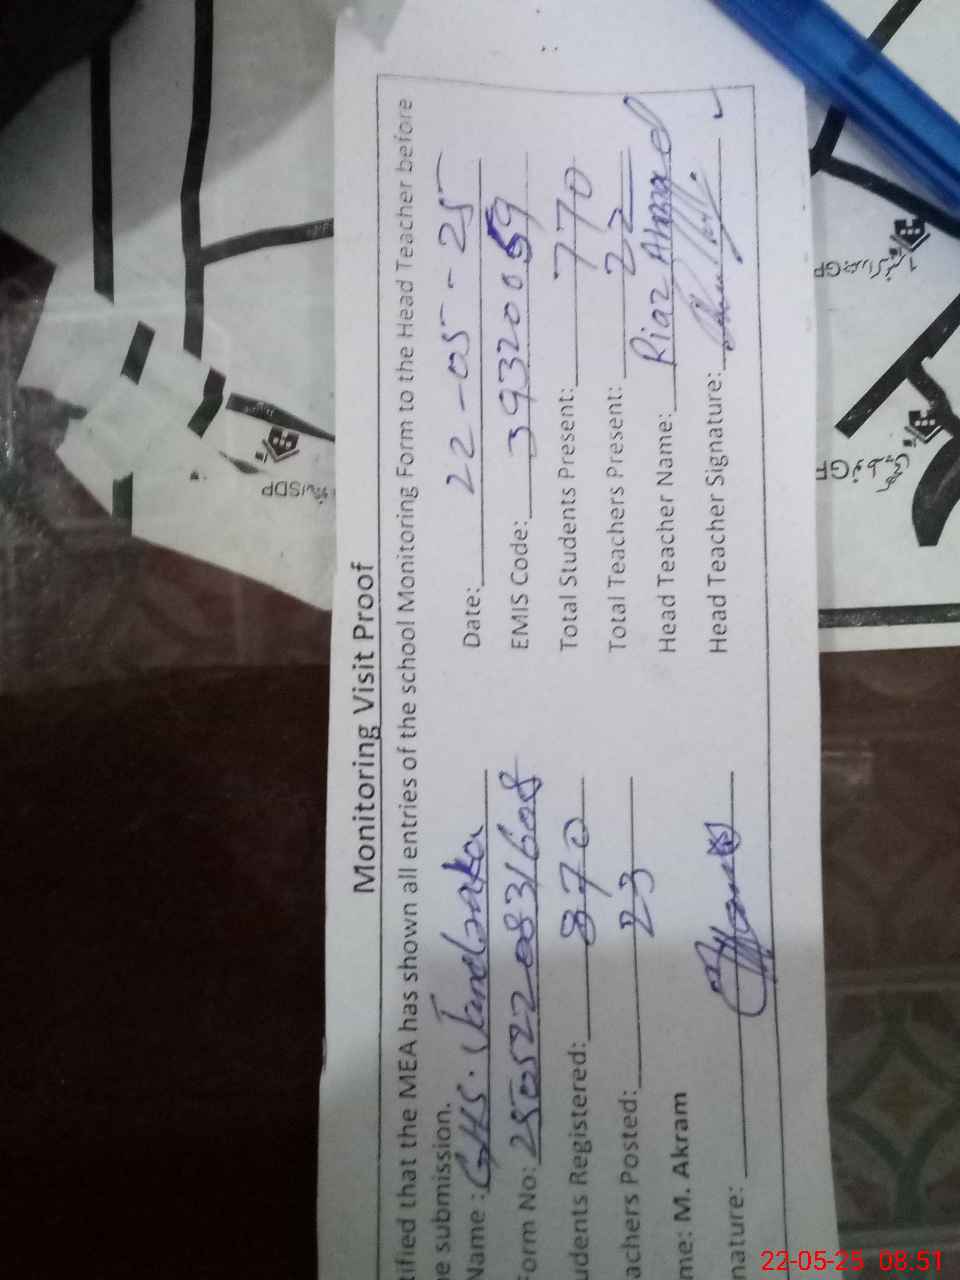 Monitoring Visit Proof
tified that the MEA has shown all entries of the school Monitoring Form to the Head Teacher before
e submission.
Name : GHS. Jandraka Date: 22-05-25
Form No: 2505220831608 EMIS Code: 39320059
udents Registered: 870 Total Students Present: 770
achers Posted: 23 Total Teachers Present: 22
me: M. Akram Head Teacher Name: Riaz Ahmed
nature: Head Teacher Signature:
22-05-25 08.51